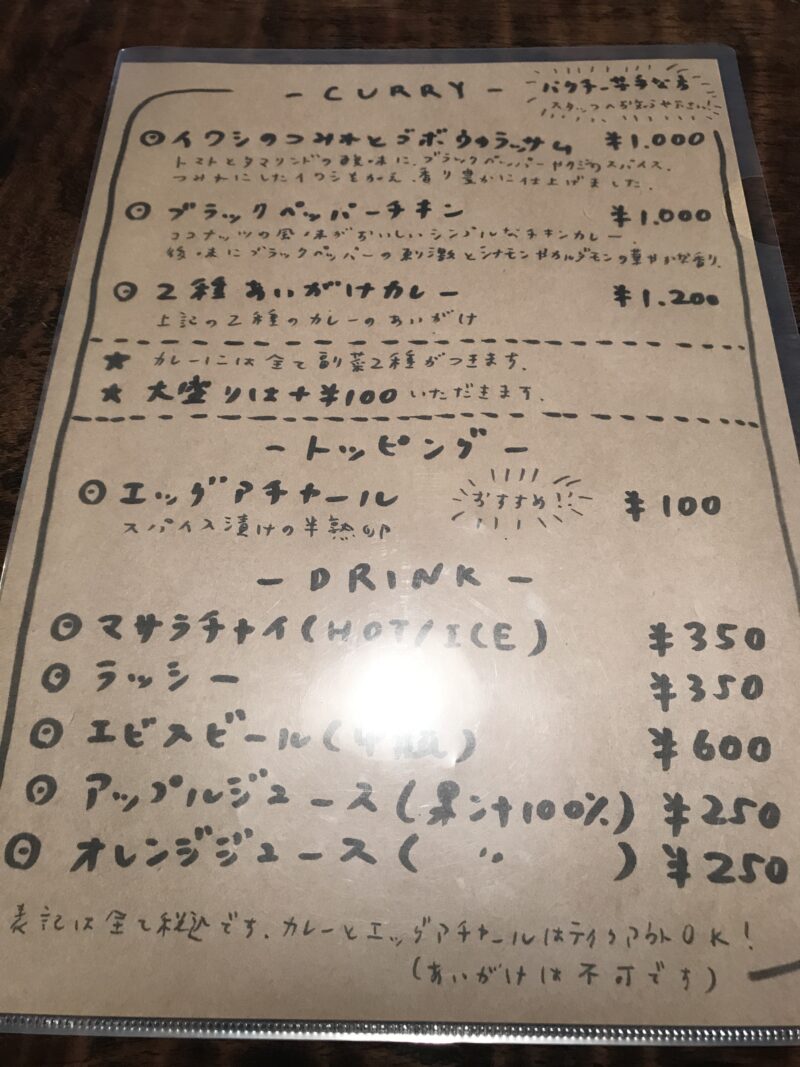 - CURRY -
パクチー苦手な方
スタッフへお申しつけ下さい!
◎イワシのつみれとゴボウのラッサム ¥1.000
トマトとタマリンドの酸味に、ブラックペッパーやクミンのスパイス。
つみれにしたイワシを加え、香り豊かに仕上げました。
◎ブラックペッパーチキン ¥1.000
ココナッツの風味がおいしいシンプルなチキンカレー
後味にブラックペッパーの刺激とシナモンやカルダモンの華やかな香り。
◎2種あいがけカレー ¥1.200
上記の2種のカレーのあいがけ
★ カレーには全て副菜2種がつきます。
★ 大盛りは+¥100いただきます。
- トッピング -
◎エッグアチャール おすすめ!! ¥100
スパイス漬けの半熟卵
- DRINK -
◎マサラチャイ(HOT/ICE) ¥350
◎ラッシー ¥350
◎エビスビール(小瓶) ¥600
◎アップルジュース(果汁100%) ¥250
◎オレンジジュース( 〃 ) ¥250
表記は全て税込です。カレーとエッグアチャールはテイクアウトOK!
(あいがけは不可です)